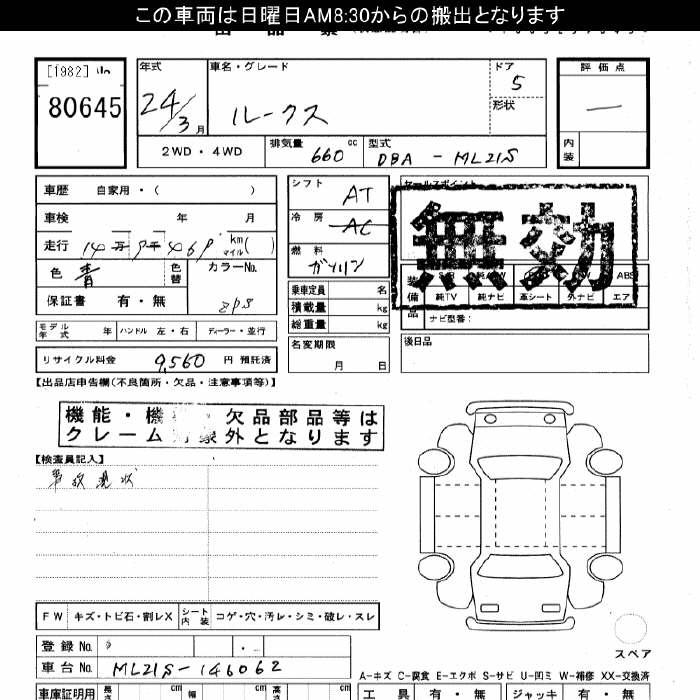 この車両は日曜日AM8:30からの搬出となります
[1982]
80645
年式
24/3月
車名・グレード
ルークス
ドア
5
形状
評価点
—
内装
2WD・4WD
排気量 660 cc
型式 DBA - ML21S
車歴 自家用・( )
車検 年 月
走行 14万 千469 km マイル( )
色 青 色替
カラーNo.
保証書 有・無
シフト AT
冷房 AC
燃料 ガソリン
乗車定員 名
積載量 kg
総重量 kg
名変期限
月 日
セールスポイント
無効
装備品
ABS
純TV 純ナビ 革シート 外ナビ エア
ナビ型番:
後日品
モデル年式 年 ハンドル 左・右 ディーラー・並行
リサイクル料金 9,560 円 預託済
【出品店申告欄(不良箇所・欠品・注意事項等)】
機能・機 欠品部品等は
クレーム対象外となります
【検査員記入】
事故現状
FW キズ・トビ石・割レX シート内装 コゲ・穴・汚レ・シミ・破レ・スレ
登録No.
車台No. ML21S-146062
スペア
A-キズ C-腐食 E-エクボ S-サビ U-凹ミ W-補修 XX-交換済
車庫証明用 長さ cm 幅 cm 高さ cm
工具 有・無 ジャッキ 有・無